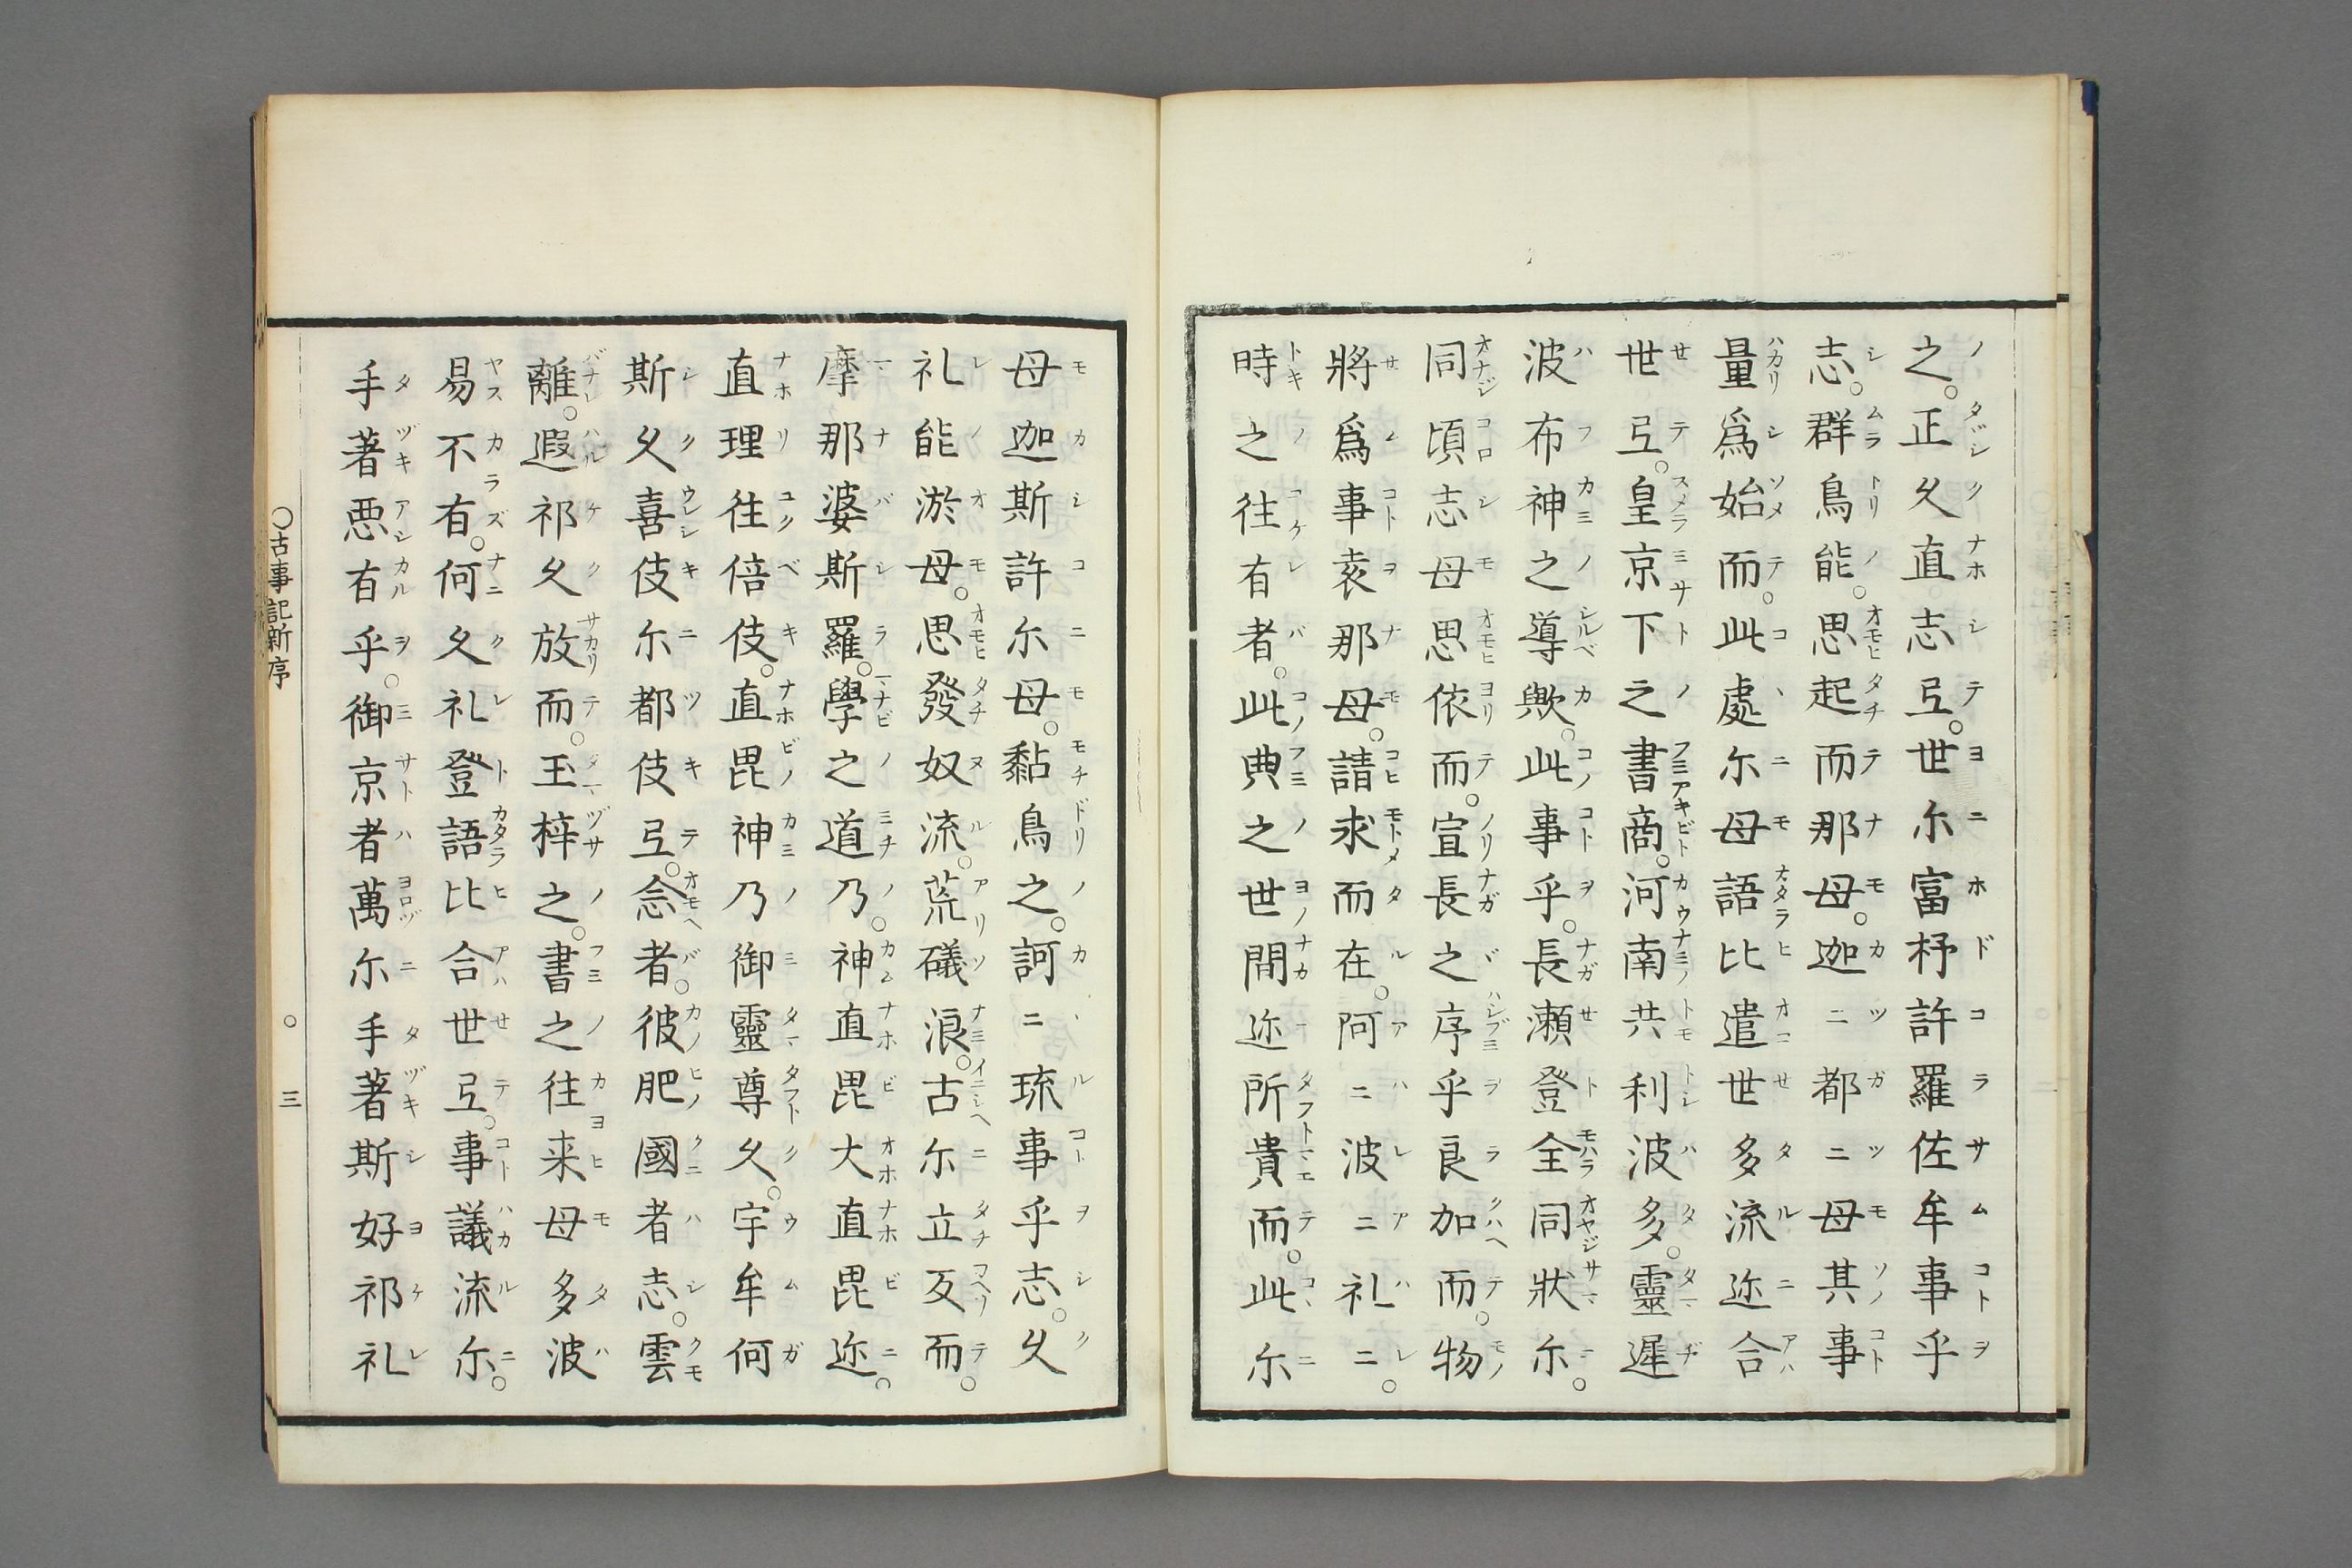 之。正久直志弖。世尓富杼許羅佐牟事乎
志。群鳥能。思起而那母。迦ニ都ニ母其事
量爲始而。此處尓母語比遣世多流迩合
世弖。皇京下之書商。河南共利波多。靈遲
波布神之導歟。此事乎。長瀬登全同狀尓。
同頃志母思依而。宣長之序乎良加而。物
將爲事袁那母。請求而在。阿ニ波ニ礼ニ。
時之往有者。此典之世間迩所貴而。此尓
母迦斯許尓母。黏鳥之。訶ニ琉事乎志。久
礼能淤母。思發奴流。荒礒浪。古尓立反而。
摩那婆斯羅。學之道乃。神直毘大直毘迩。
直理往倍伎。直毘神乃御靈尊久。宇牟何
斯久喜伎尓都伎弖。念者。彼肥國者志。雲
離。遐祁久放而。玉梓之。書之往来母多波
易不有。何久礼登語比合世弖。事議流尓。
手著悪有乎。御京者萬尓手著斯好祁礼
〇古事記新序 〇 三